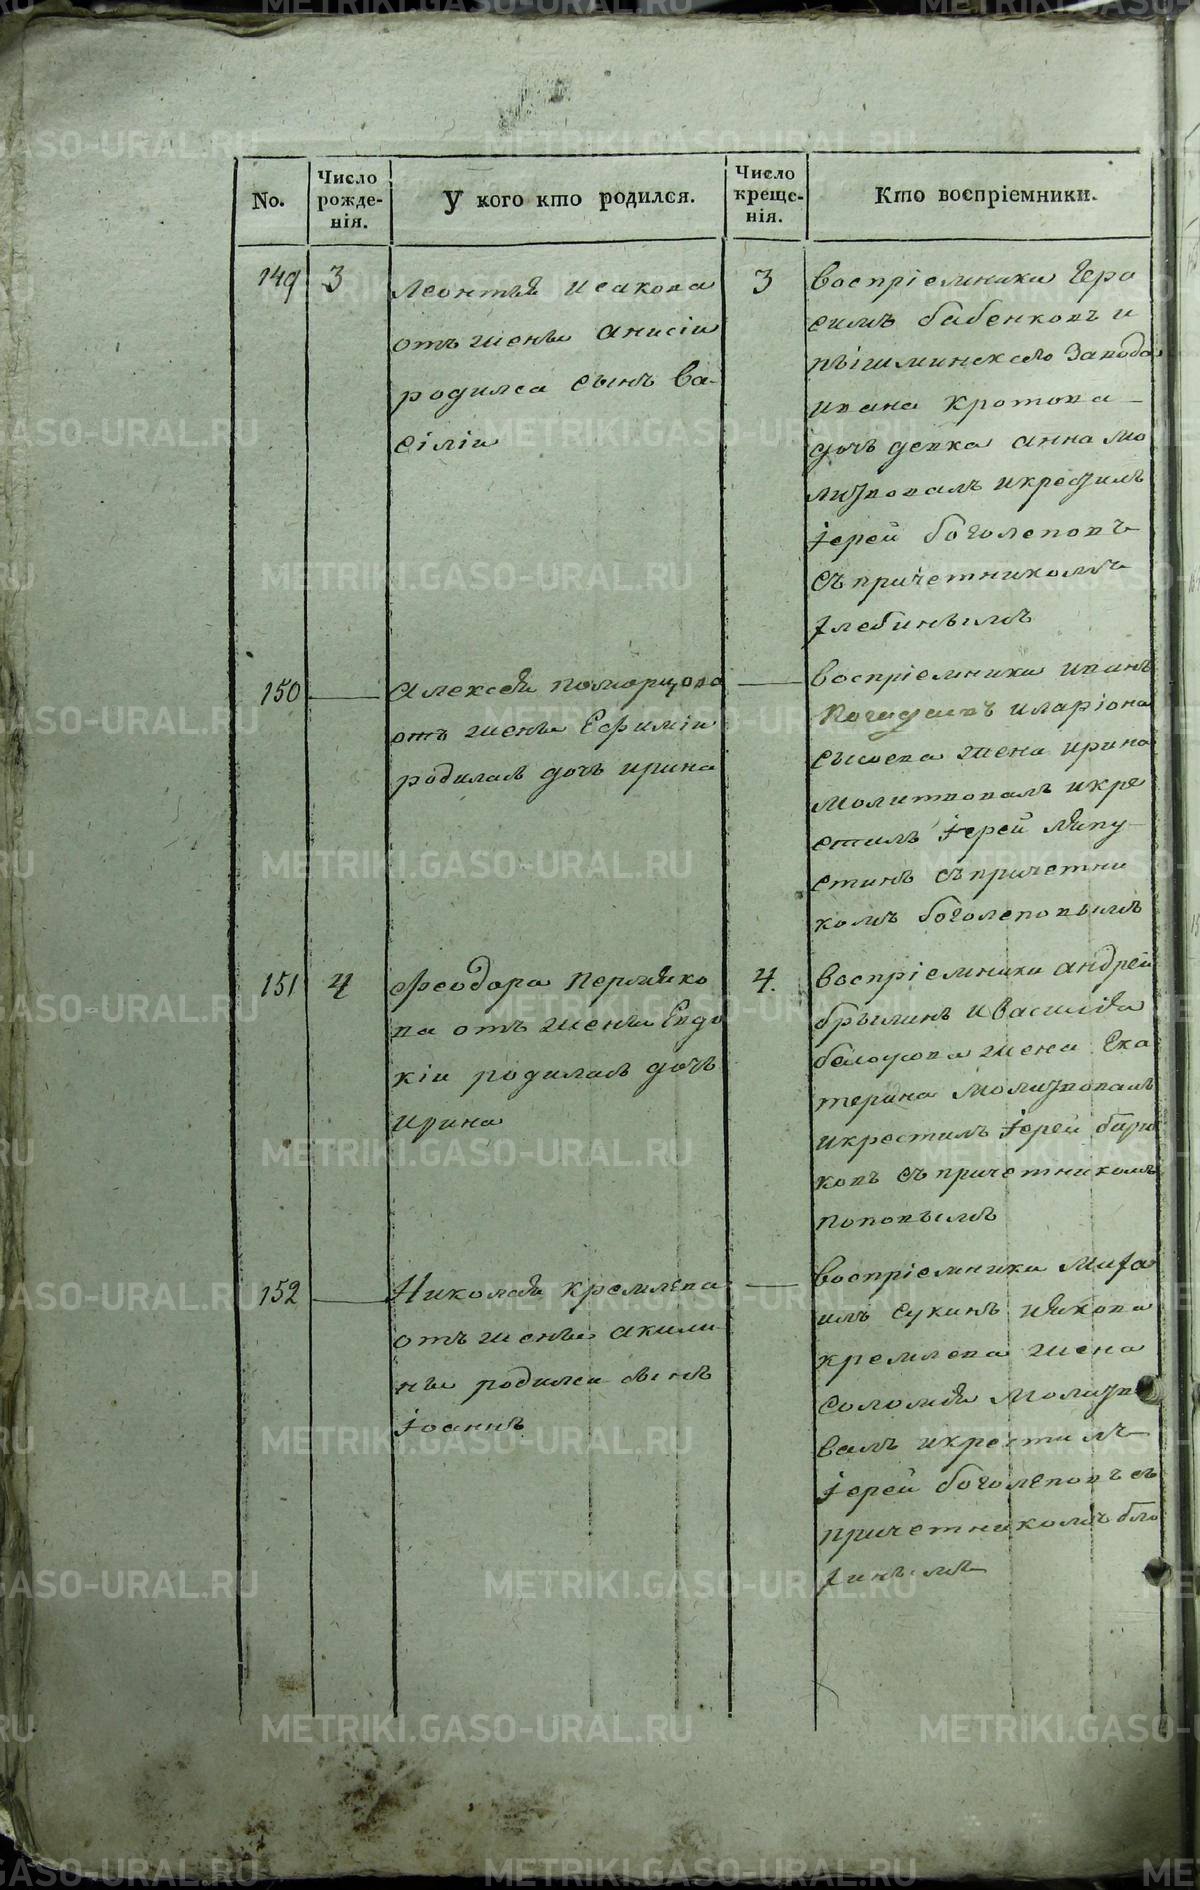 No.
Число рожде-нія.
У кого кто родился.
Число креще-нія.
Кто воспріемники.
149
3
Леонтья Исакова
отъ жены Анисіи
родился сынъ Ва-
сіліи
3
воспріемники Гера
симъ бабенковъ и
пышминскаго Завода
ивана Кротова
дочь девка анна мо
литвовалъ и крестилъ
іерей боголеповъ
съ причетникомъ
Глебинымъ
150
Алексея поморцова
отъ жены Ефиміи
родилась дочь ирина
воспріемники иванъ
иларіона
сысоева жена ирина
молитвовалъ и кре
стилъ іерей
стинъ съ причетни
комъ боголеповымъ
151
4
Феодора Пермяко
ва отъ жены Евдо
кіи родилась дочь
ирина
4.
воспріемники андрей
брылинъ и Василія
белоусова жена Ека
терина молитвовалъ
и крестилъ іерей
ковъ съ причетникомъ
поповымъ
152
Николая кремлева
отъ жены акили
ны родился сынъ
іоаннъ
воспріемники Миха
илъ сукинъ и якова
кремлева жена
соломія молитво
валъ и крестилъ
іерей боголеповъ съ
причетникомъ
METRIKI.GASO-URAL.RU